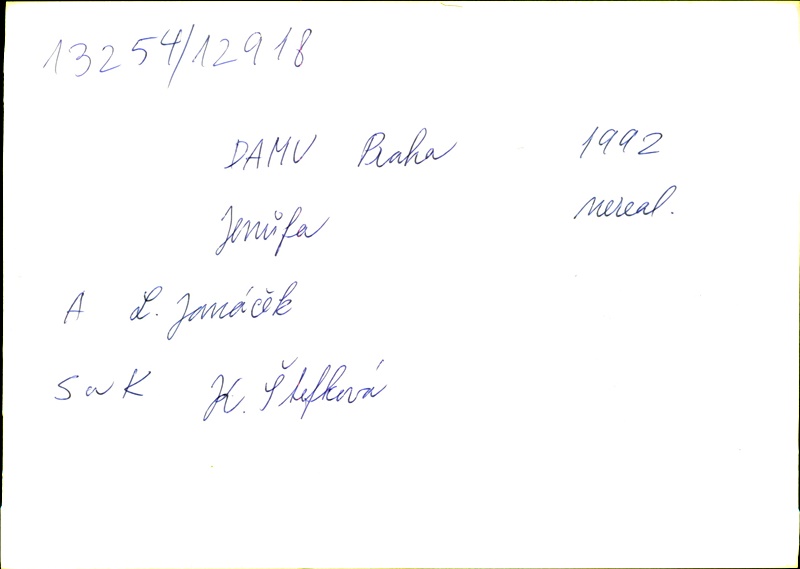 13254/12918
DAMU Praha 1992
Jenůfa nereal.
A L. Janáček
S a K K. Štefková